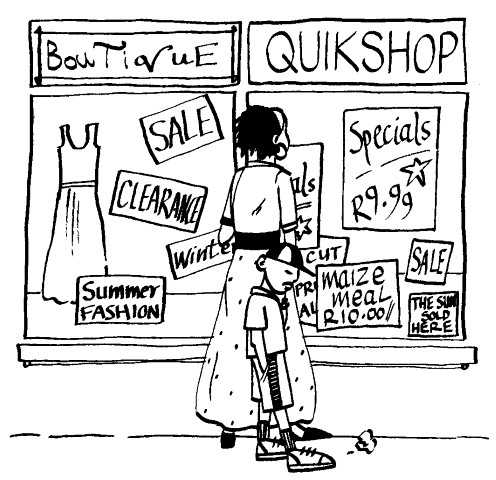 BOWTIQUE
QUIKSHOP
SALE
CLEARANCE
Winte
Summer
FASHION
als
CUT
PRI
AL
Specials
R9.99
maize
meal
R10.00//
SALE
THE SUN
SOLD
HERE